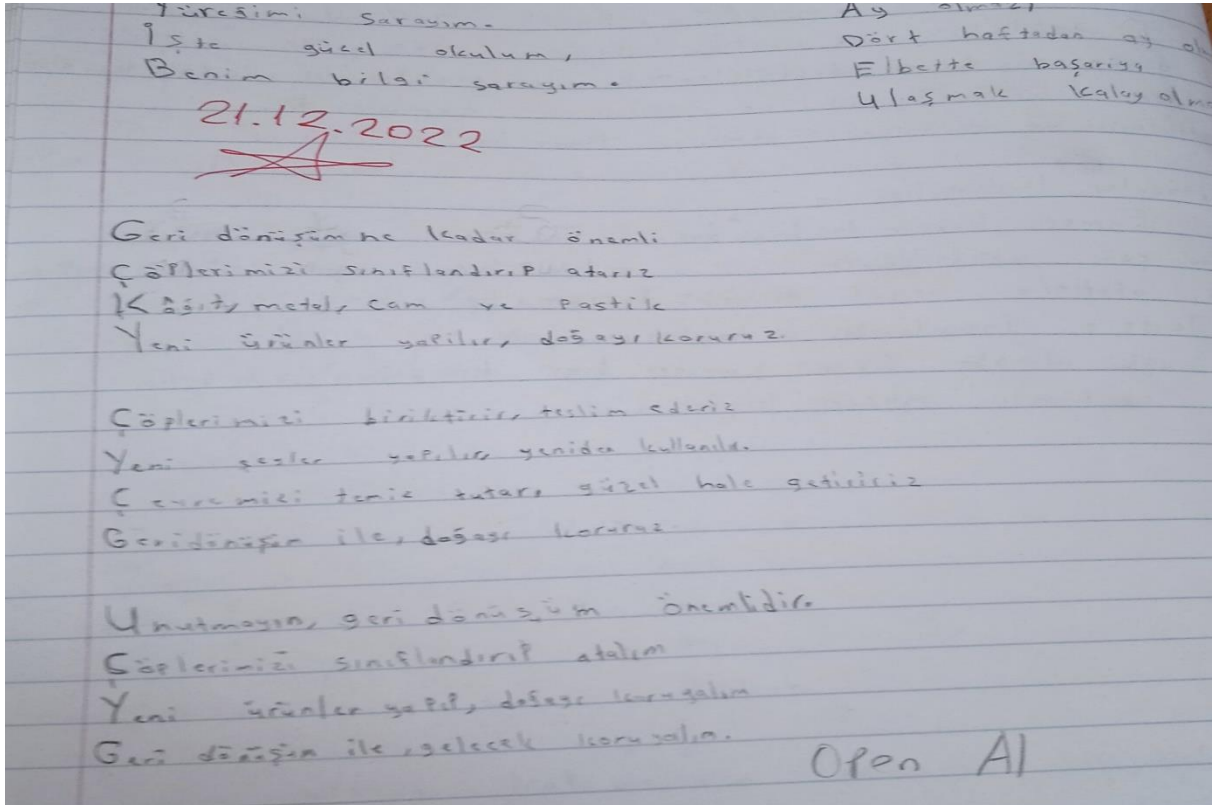 Yüreğimi sarayım.
İşte güzel okulum,
Benim bilgi sarayım.
Ay olmaz,
Dört haftadan ay
Elbette başarıya
Ulaşmak kolay
21.12.2022
Geri dönüşüm ne kadar önemli
Çöplerimizi sınıflandırıp atarız
Kâğıt, metal, cam ve pastik
Yeni ürünler yapılır, doğayı koruruz.
Çöplerimizi biriktirir, teslim ederiz
Yeni şeyler yapılır, yeniden kullanılır.
Çevremizi temiz tutar, güzel hale getiririz
Geridönüşüm ile, doğayı koruruz
Unutmayın, geri dönüşüm önemlidir.
Çöplerimizi sınıflandırıp atalım
Yeni ürünler yapıp, doğayı koruyalım
Geri dönüşüm ile, gelecek koruyalım.
Open AI